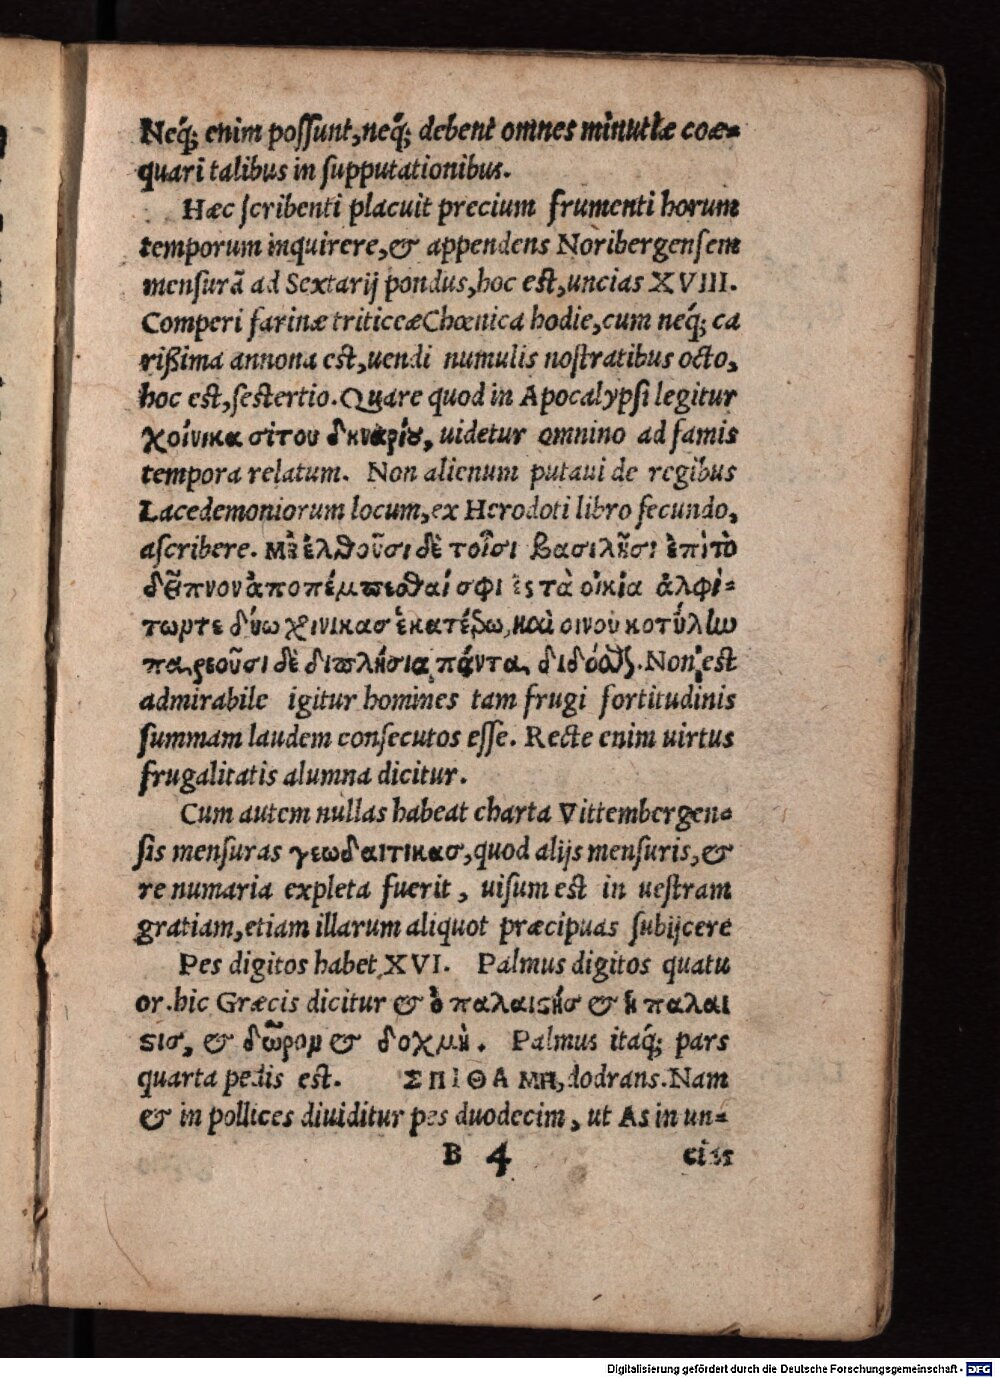 Neq́; enim poſſunt, neq́; debent omnes minutiæ coæ=
quari talibus in ſupputationibus.
Hæc ſcribenti placuit precium frumenti horum
temporum inquirere, & appendens Noribergenſem
menſurã ad Sextarij pondus, hoc est, uncias XVIII.
Comperi farinæ triticeæ Chœnica hodie, cum neq́; ca
rißima annona est, uendi numulis noſtratibus octo,
hoc est, ſestertio. Quare quod in Apocalypſi legitur
χοίνικα σίτου δηναρίȣ, uidetur omnino ad famis
tempora relatum. Non alienum putaui de regibus
Lacedemoniorum locum, ex Herodoti libro ſecundo,
aſcribere. μὴ ἐλθοῦσι δὲ τοῖσι βασιλῆσι ἐπὶ τὸ
δεῖπνον ἀποπέμπεσθαί σφι ἐς τὰ οἰκία ἀλφί=
τωντε δύω χίνικας ἑκατέρω, καὶ οἴνου κοτύλlω
παρεοῦσι δὲ διπλήσια πάντα διδόσθς. Non est
admirabile igitur homines tam frugi fortitudinis
ſummam laudem conſecutos eſſe. Recte enim uirtus
frugalitatis alumna dicitur.
Cum autem nullas habeat charta Vittembergen=
ſis menſuras γεωδαιτικας, quod alijs menſuris, &
re numaria expleta fuerit, uiſum est in ueſtram
gratiam, etiam illarum aliquot præcipuas ſubijcere
Pes digitos habet XVI. Palmus digitos quatu
or. hic Græcis dicitur & ὁ παλαιϛὴς & ἡ παλαι
ϛις, & δῶρον & δοχμὴ. Palmus itaq́; pars
quarta pedis est. ΣΠΙΘΑΜΗ, dodrans. Nam
& in pollices diuiditur pes duodecim, ut As in un=
B 4 cias
Digitalisierung gefördert durch die Deutsche Forschungsgemeinschaft - DFG